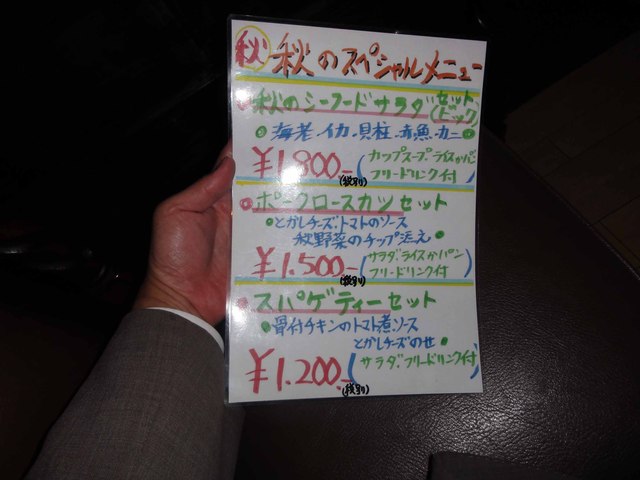 秋 秋のスペシャルメニュー
秋のシーフードサラダセット(ビック)
海老・イカ・貝柱・赤魚・カニ
¥1.800-(税別)
(カップスープ、ライスかパン
フリードリンク付)
ポークロースカツセット
とかしチーズ、トマトのソース
秋野菜のチップ添え
¥1.500-(税別)
(サラダ、ライスかパン
フリードリンク付)
スパゲティーセット
骨付チキンのトマト煮ソース
とかしチーズのせ
¥1.200-(税別)
(サラダ、フリードリンク付)